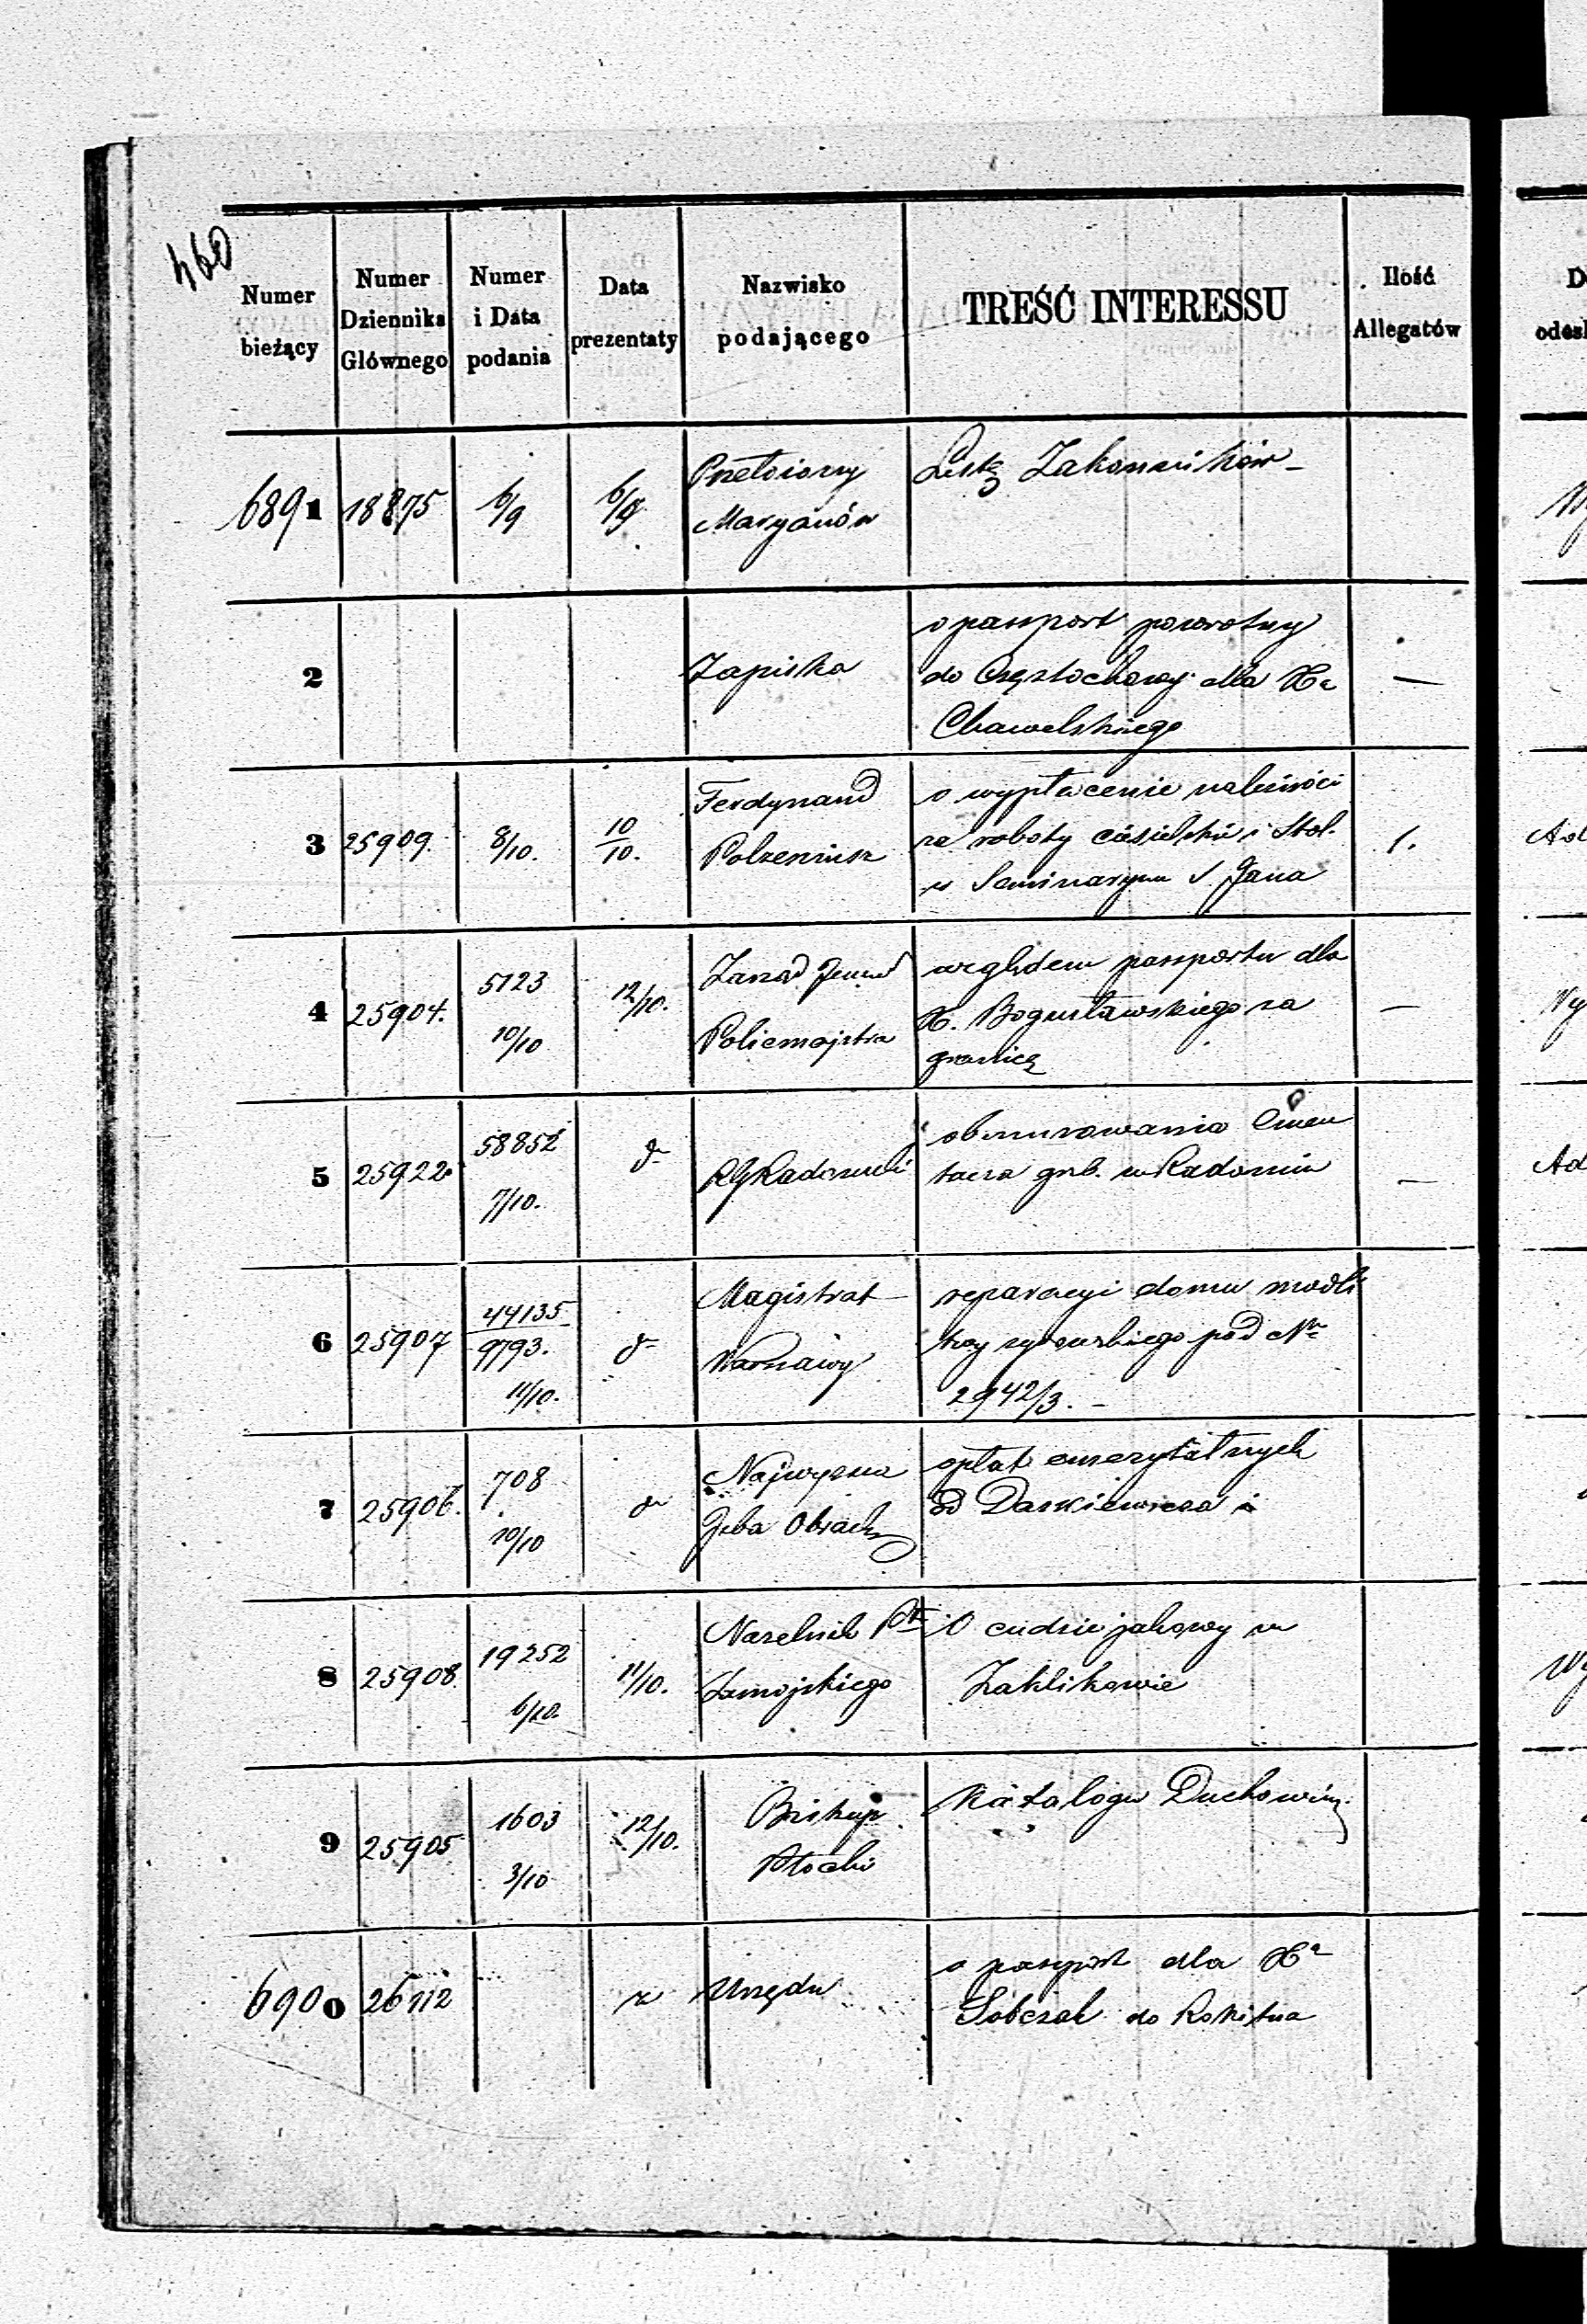 460
Numer bieżący
Numer Dziennika Głównego
Numer i Data podania
Data prezentaty
Nazwisko podającego
TREŚĆ INTERESSU
Ilość Allegatów
6891 18875 6/9 6/9
Przełożony
Maryanów
Listę Zakonników
2
Zapiska
o passport powrotny
do Częstochowy dla Xa
Chawelskiego
—
3 25909. 8/10. 10/10.
Ferdynand
Polzeniusz
o wypłacenie należności
za roboty ciesielskie i Stol.
w Seminaryum S. Jana
1.
4 25904. 5123 10/10 12/10.
Zarząd Jenerał
Policmajstra
względem passportu dla
X. Bogusławskiego za
granicę
—
5 25922 58852 7/10. do
RG Radomski
obmurowania Cmen
tarza grzb. w Radomiu
—
6 25907 44135 9793. 11/10. do
Magistrat
Warszawy
reparacyi domu modli
twy pod No
2942/3. –
7 25906. 708 10/10 do
Najwyższa
Izba Obrach
opłat emerytalnych
od Daszkiewicza i
8 25908 19252 6/10. 11/10.
Naczelnik Ptu
Zamojskiego
O cudzie jakowy w
Zaklikowie
9 25905 1603 3/10 12/10.
Biskup
Płocki
Katalogu Duchowień.
6900 26112
z Urzędu
o pasport dla Xa
Sobczak do Rokitna